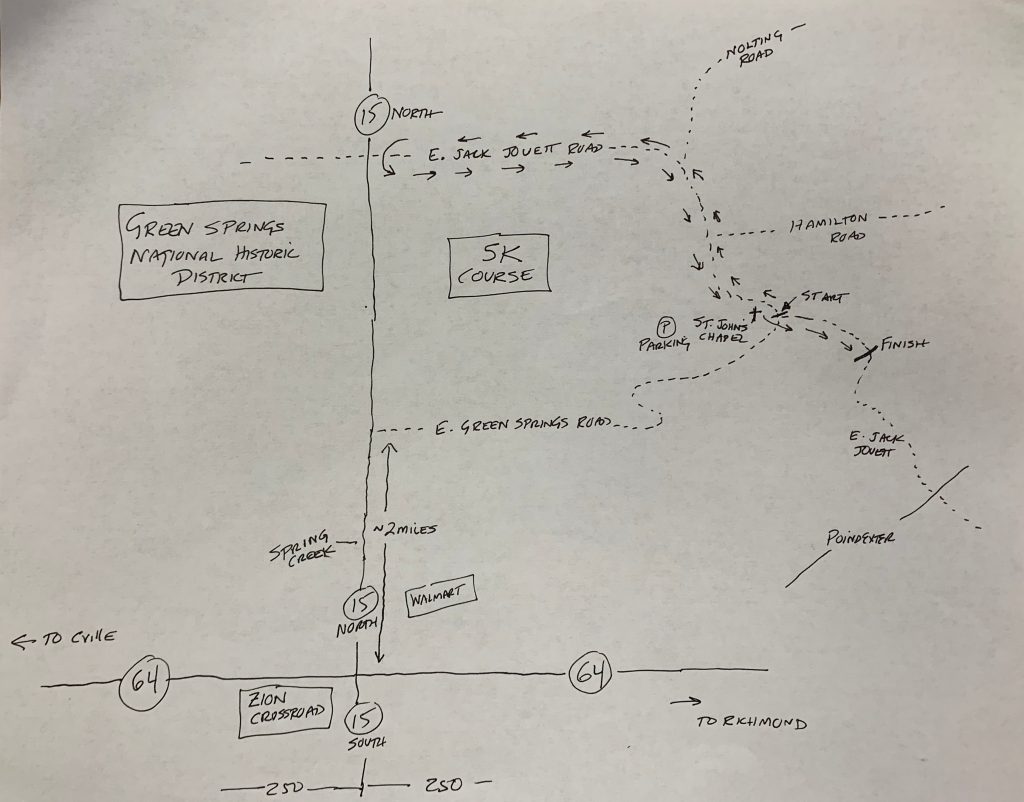 NOLTING
ROAD
15 NORTH
E. JACK JOUETT ROAD
GREEN SPRINGS
NATIONAL HISTORIC
DISTRICT
5K
COURSE
HAMILTON
ROAD
START
P
PARKING
ST. JOHNS
CHAPEL
FINISH
E. GREEN SPRINGS ROAD
E. JACK
JOUETT
~2 MILES
SPRING
CREEK
POINDEXTER
WALMART
15
NORTH
← TO CVILLE
64
64
ZION
CROSSROAD
15
SOUTH
→
TO RICHMOND
250
250